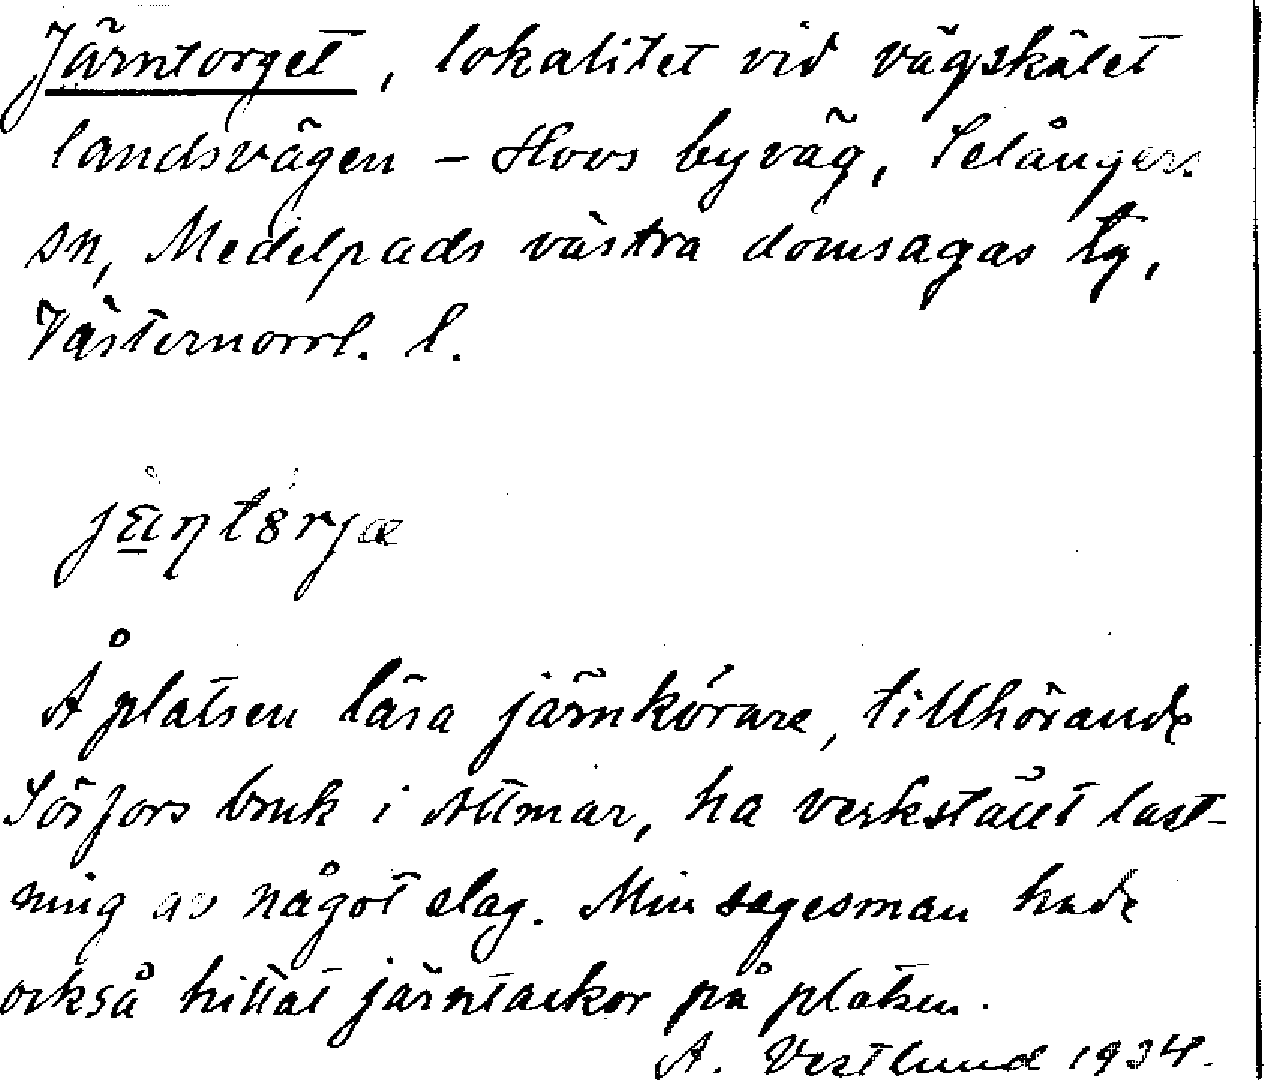 Järntorget, lokalitet vid vägskälet
landsvägen – Hovs byväg, Selångers
sn, Medelpads västra domsagas tg,
Västernorrl. l.
Å platsen lära järnkörare, tillhörande
Sörfors bruk i Attmar, ha verkställt last-
ning av något slag. Min sagesman hade
också hittat järntackor på platsen.
A. Vestlund 1934.